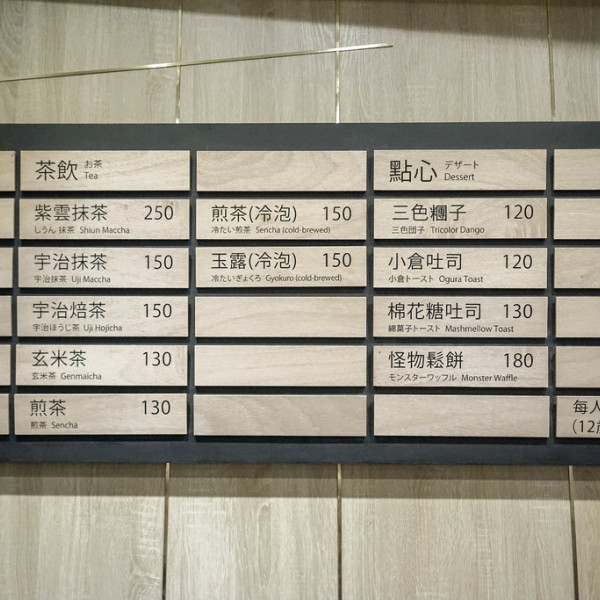 茶飲 お茶
Tea
紫雲抹茶 250
しうん 抹茶 Shiun Maccha
宇治抹茶 150
宇治抹茶 Uji Maccha
宇治焙茶 150
宇治ほうじ茶 Uji Hojicha
玄米茶 130
玄米茶 Genmaicha
煎茶 130
煎茶 Sencha
煎茶(冷泡) 150
冷たい煎茶 Sencha (cold-brewed)
玉露(冷泡) 150
冷たいぎょくろ Gyokuro (cold-brewed)
點心 デザート
Dessert
三色糰子 120
三色団子 Tricolor Dango
小倉吐司 120
小倉トースト Ogura Toast
棉花糖吐司 130
綿菓子トースト Mashmellow Toast
怪物鬆餅 180
モンスターワッフル Monster Waffle
每人
(12歲